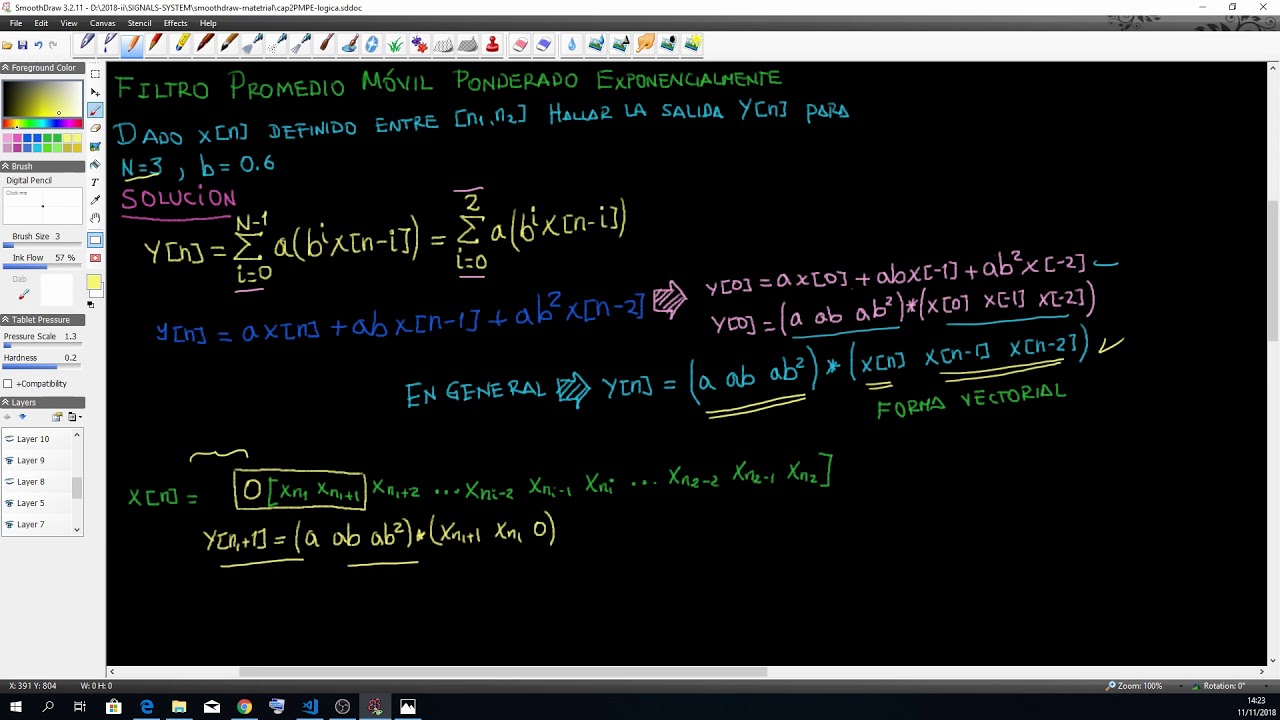 SmoothDraw 3.2.11 - D:\2018-ii\SIGNALS-SYSTEM\smoothdraw-matetrial\cap2PMPE-logica.sddoc
File Edit View Canvas Stencil Effects Help
Foreground Color
Brush
Digital Pencil
Click me
Brush Size 3
Ink Flow 57 %
Dab
Tablet Pressure
Pressure Scale 1.3
Hardness 0.2
+Compatibility
Layers
Layer 10
Layer 9
Layer 8
Layer 7
FILTRO PROMEDIO MÓVIL PONDERADO EXPONENCIALMENTE
DADO X[n] DEFINIDO ENTRE [n₁,n₂] HALLAR LA SALIDA Y[n] PARA
N=3 , b=0.6
SOLUCION
Y[n] = ∑_{i=0}^{N-1} a(bⁱx[n-i]) = ∑_{i=0}^{2} a(bⁱx[n-i])
Y[n] = ax[n] + abx[n-1] + ab²x[n-2]
Y[0] = ax[0] + abx[-1] + ab²x[-2]
Y[0] = (a ab ab²)*(x[0] x[-1] x[-2])
EN GENERAL ⇒ Y[n] = (a ab ab²)*(x[n] x[n-1] x[n-2])
FORMA VECTORIAL
X[n] = 0[X_{n₁} X_{n₁+1} X_{n₁+2} ... X_{ni-2} X_{ni-1} X_{ni} ... X_{n₂-2} X_{n₂-1} X_{n₂}]
Y[n₁+1] = (a ab ab²)*(X_{n₁+1} X_{n₁} 0)
X: 391 Y: 804 W: 0 H: 0
Zoom: 100%
Rotation: 0°
14:23
11/11/2018